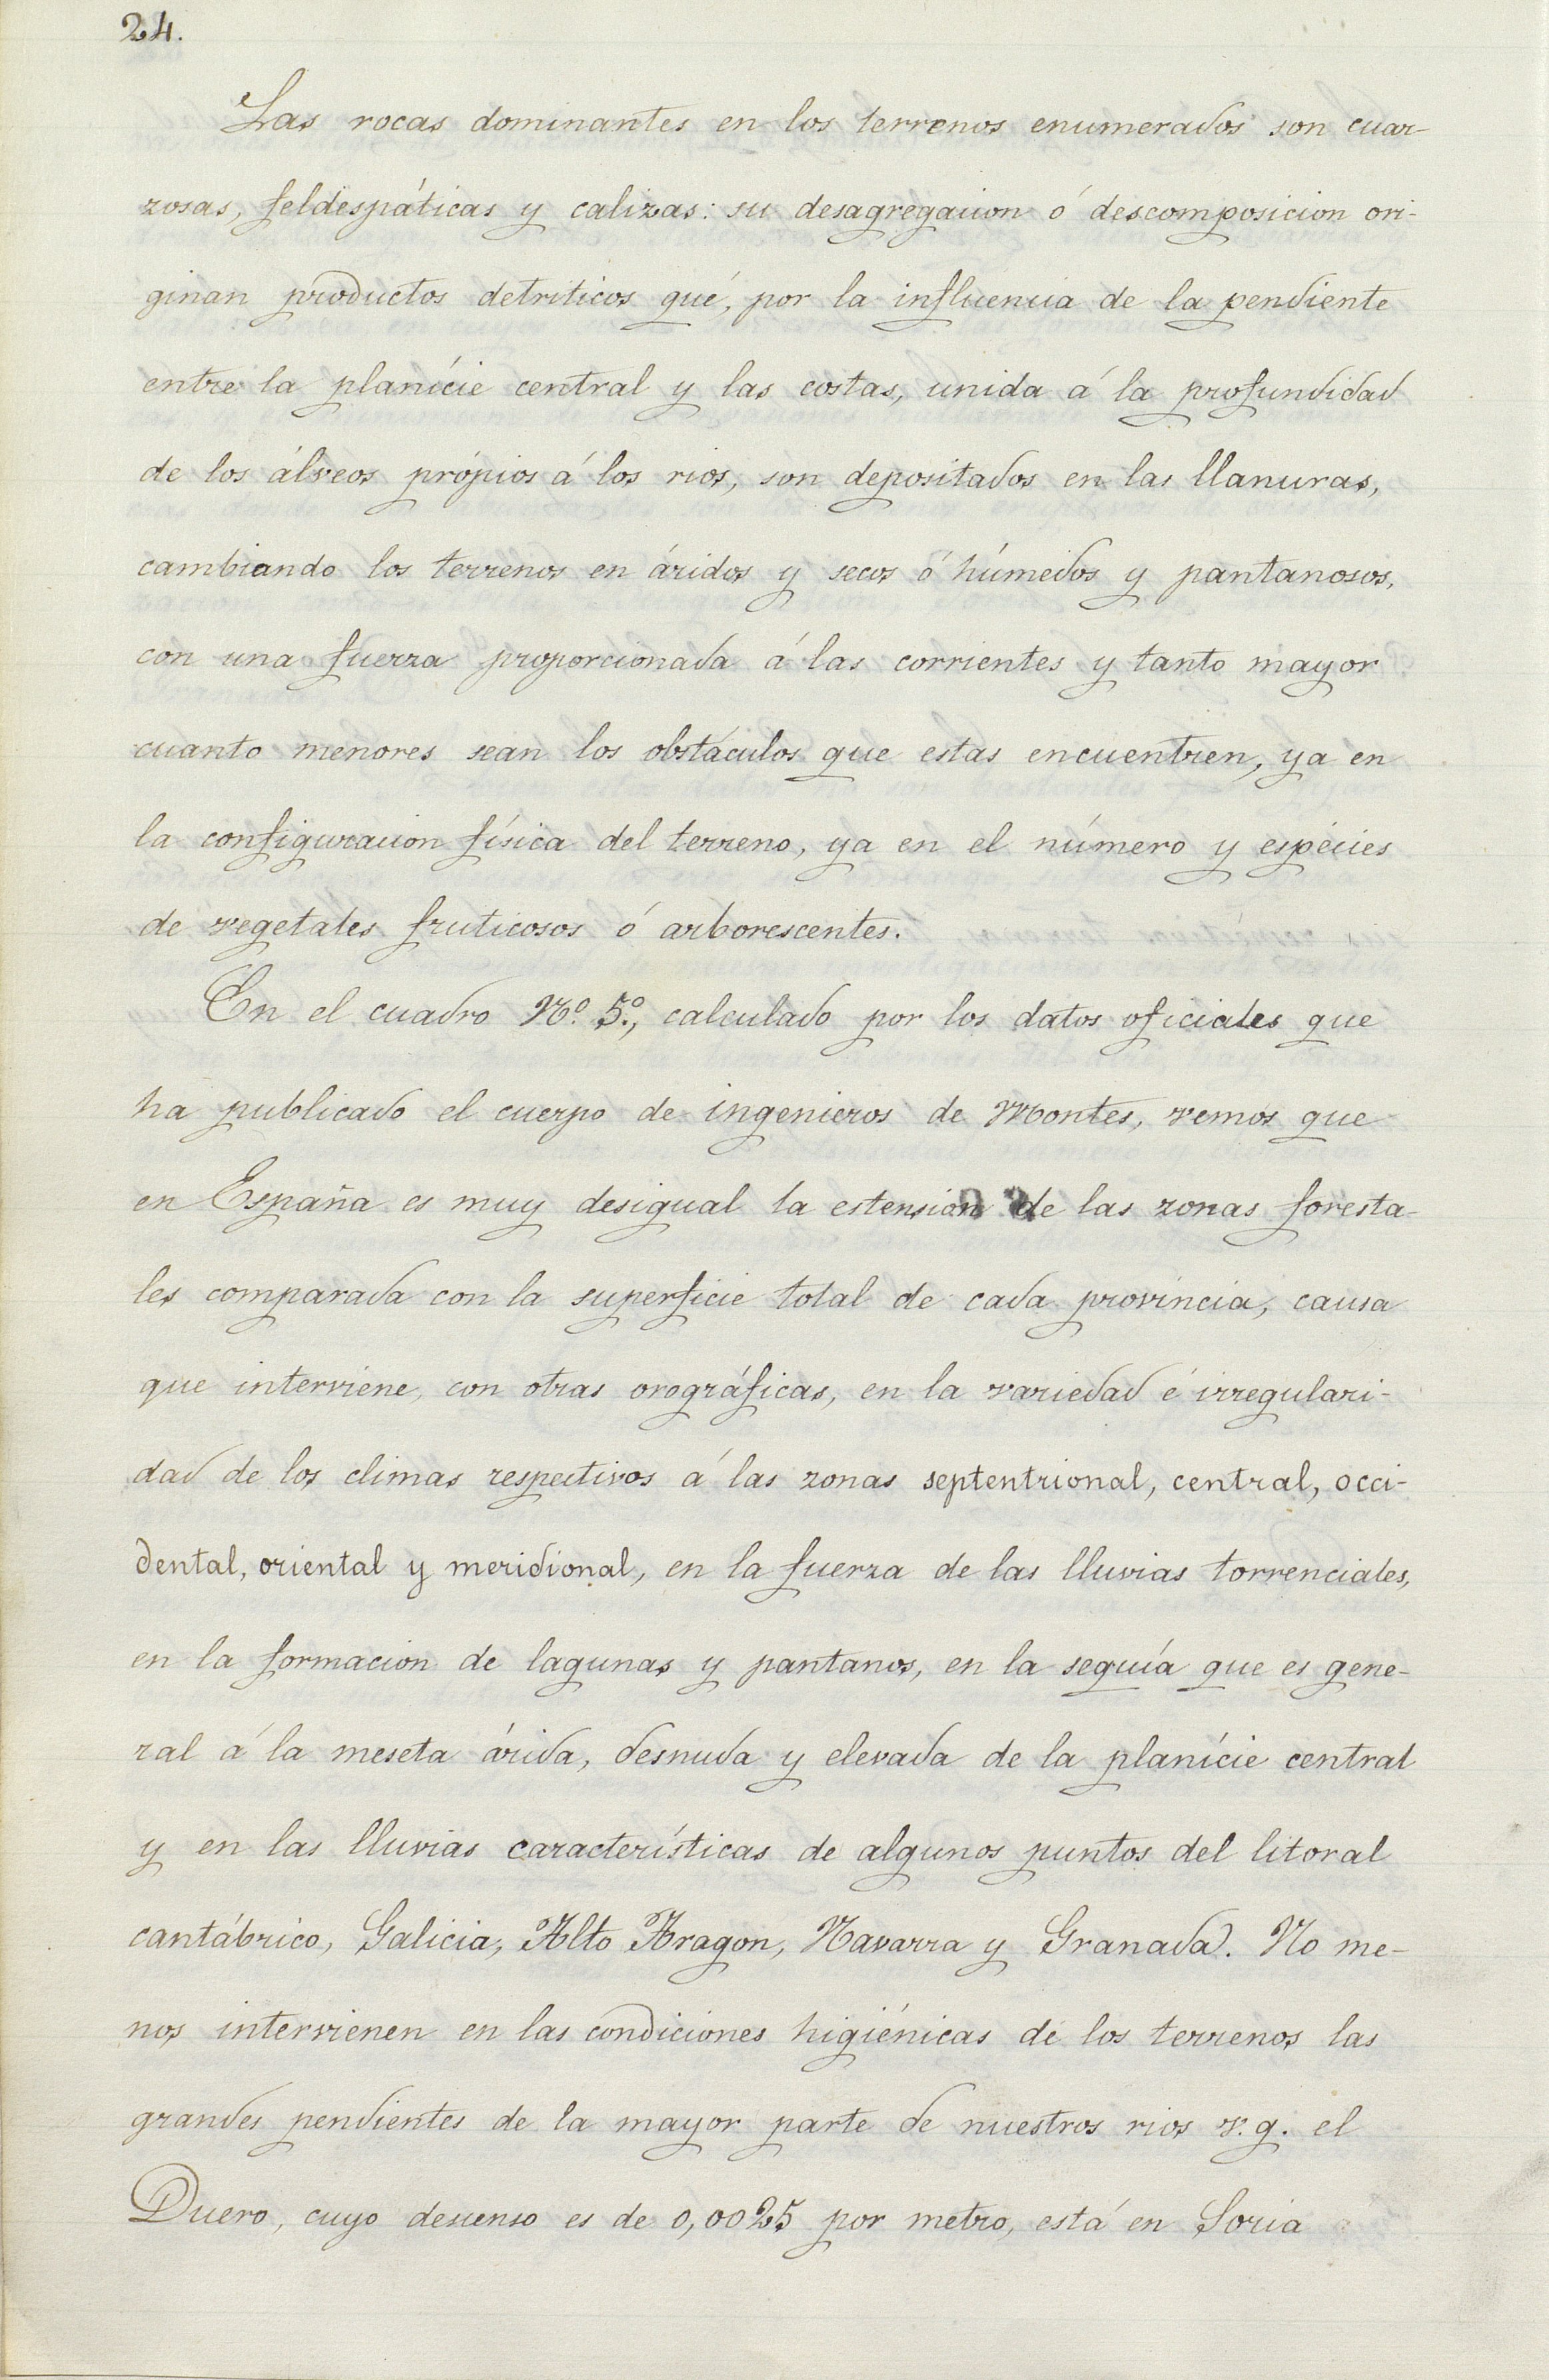 24.
Las rocas dominantes en los terrenos enumerados son cuar-
zosas, feldespáticas y calizas: su desagregacion ó descomposicion ori-
ginan productos detriticos qué, por la influencia de la pendiente
entre la planície central y las costas, unida á la profundidad
de los álveos própios á los rios, son depositados en las llanuras,
cambiando los terrenos en áridos y secos ó húmedos y pantanosos,
con una fuerza proporcionada á las corrientes y tanto mayor
cuanto menores sean los obstáculos que estas encuentren, ya en
la configuracion física del terreno, ya en el número y espécies
de vegetales fruticosos ó arborescentes.
En el cuadro Nº. 5º., calculado por los datos oficiales que
ha publicado el cuerpo de ingenieros de Montes, vemos que
en España es muy desigual la estension de las zonas foresta-
les comparada con la superficie total de cada província, causa
que interviene, con otras orográficas, en la variedad é irregulari-
dad de los climas respectivos á las zonas septentrional, central, occi-
dental, oriental y meridional, en la fuerza de las lluvias torrenciales,
en la formacion de lagunas y pantanos, en la sequía que es gene-
ral á la meseta árida, desnuda y elevada de la planície central
y en las lluvias características de algunos puntos del litoral
cantábrico, Galicia, Alto Aragon, Navarra y Granada. No me-
nos intervienen en las condiciones higiénicas de los terrenos las
grandes pendientes de la mayor parte de nuestros rios v.g. el
Duero, cuyo descenso es de 0,0025 por metro, está en Soria